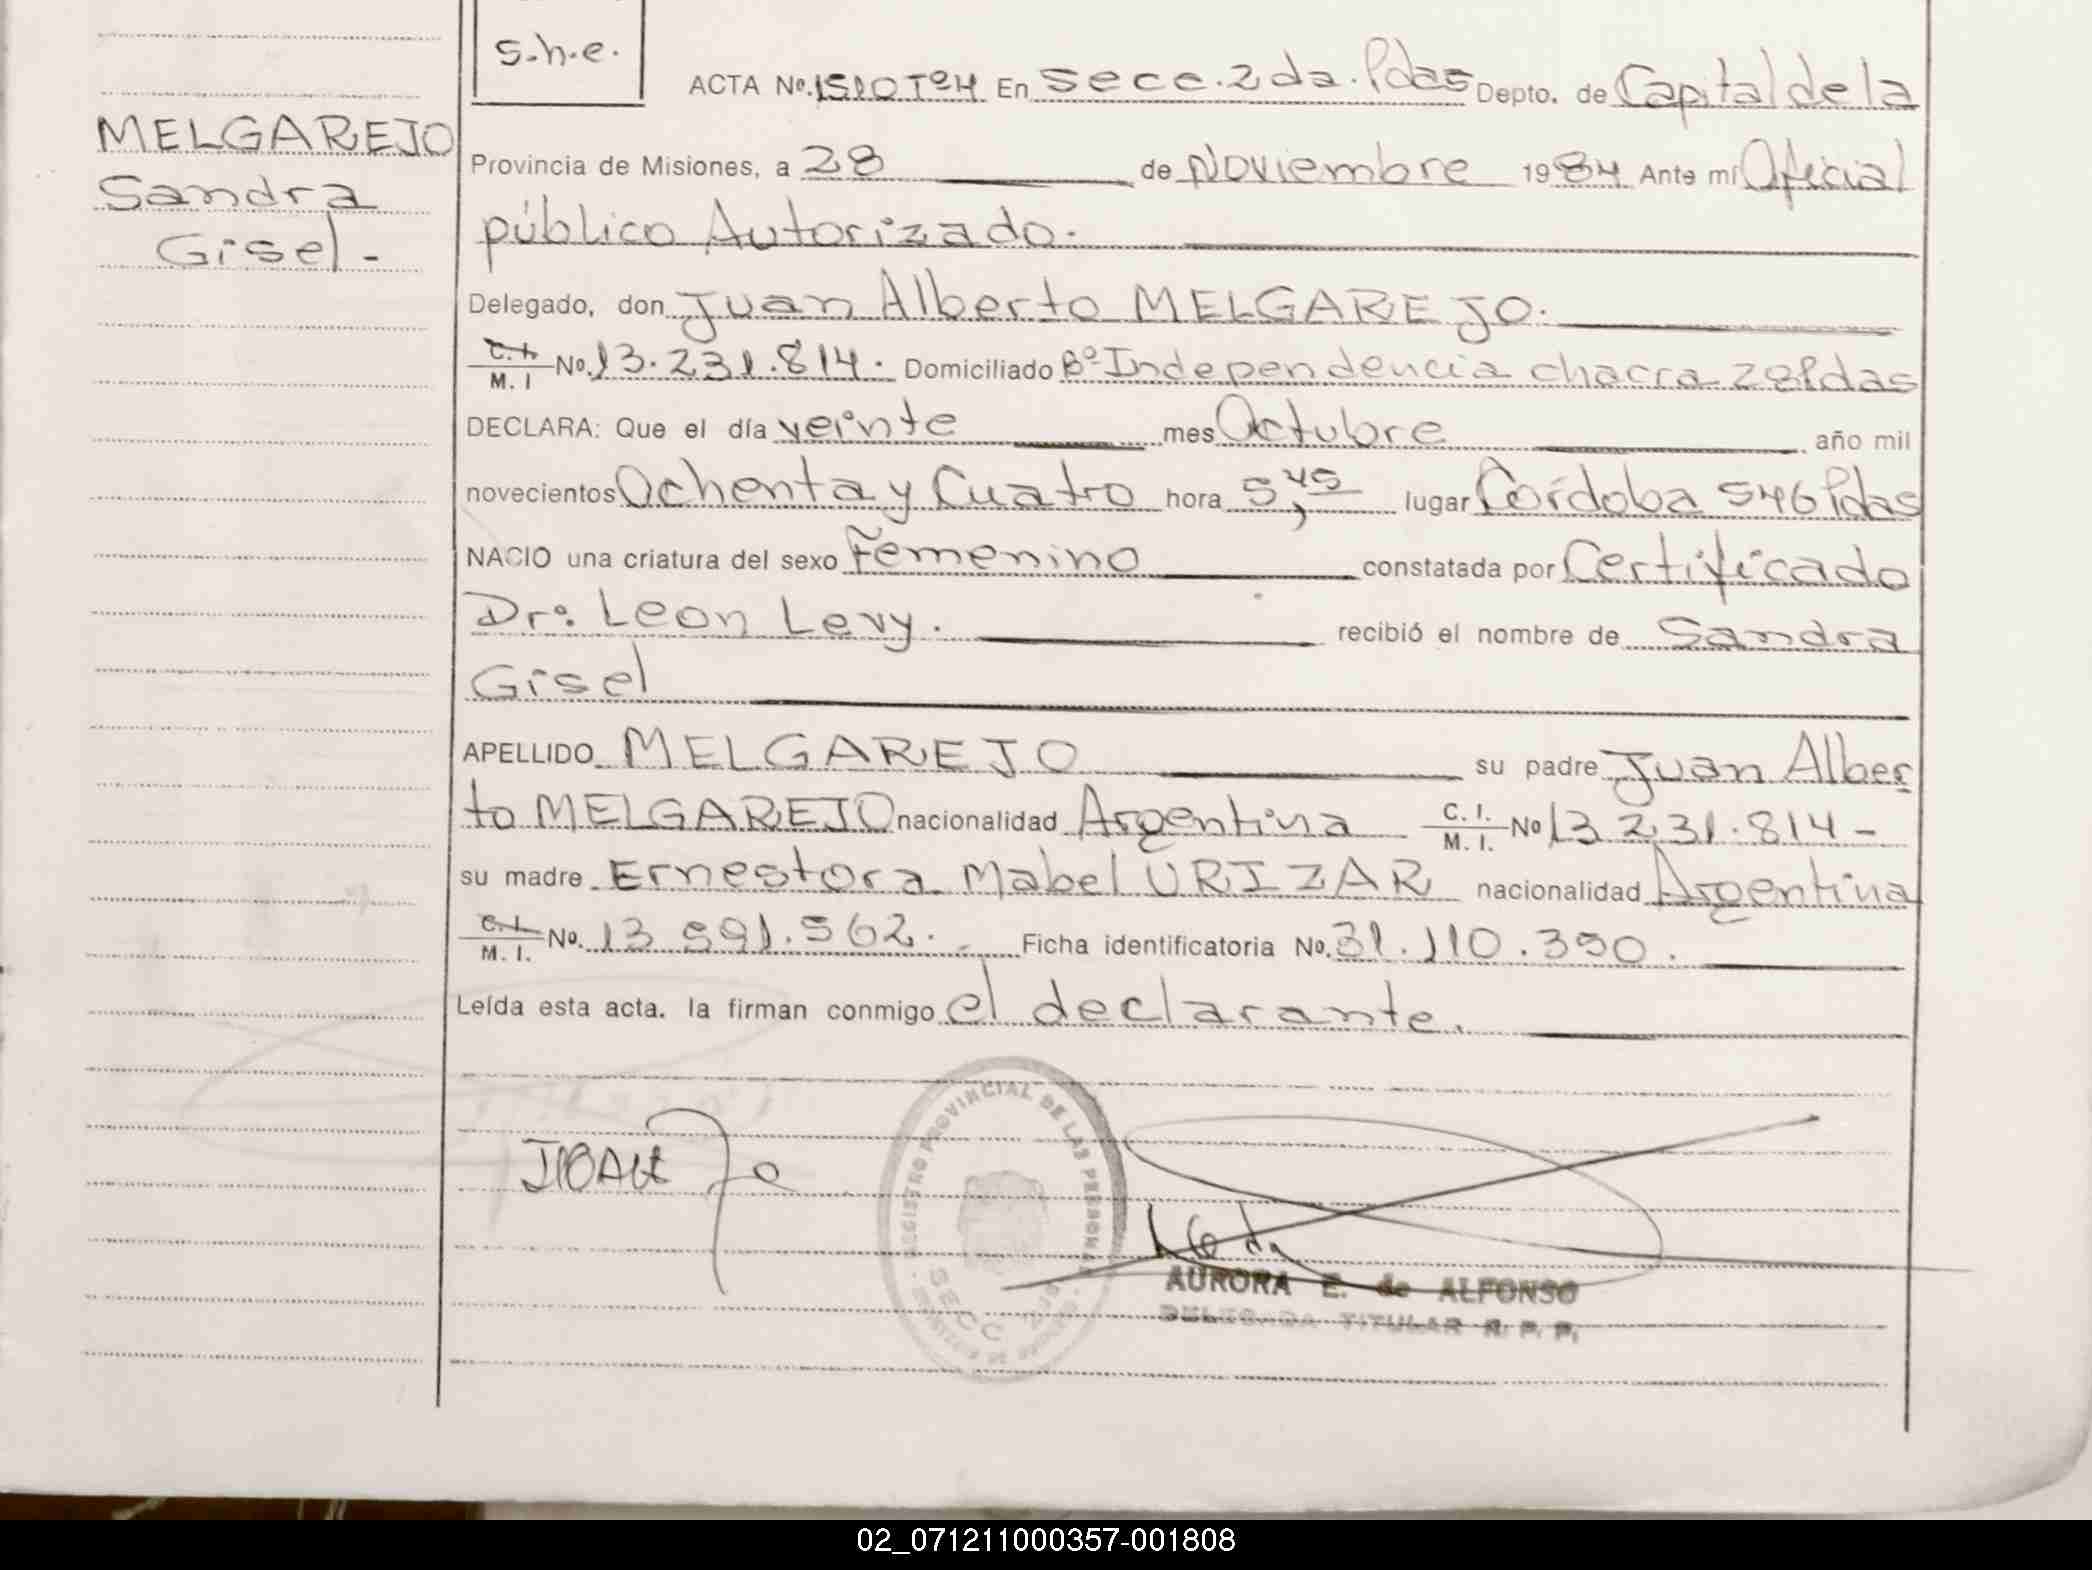 s.h.e.
ACTA Nº. 1510 Tº4 En Secc. 2da. Pdas Depto. de Capital de la
MELGAREJO
Sandra
Gisel -
Provincia de Misiones, a 28 de Noviembre 1984 Ante mí Oficial
público Autorizado.
Delegado, don Juan Alberto MELGAREJO.
C.I. M. I No. 13.231.814. Domiciliado Bº Independencia chacra 28 Pdas
DECLARA: Que el día veinte mes Octubre año mil
novecientos Ochenta y Cuatro hora 5,45 lugar Córdoba 546 Pdas
NACIO una criatura del sexo Femenino constatada por Certificado
Dr: Leon Levy. recibió el nombre de Sandra
Gisel
APELLIDO MELGAREJO su padre Juan Alber
to MELGAREJO nacionalidad Argentina C. I. M. I. Nº 13 231.814-
su madre Ernestora Mabel URIZAR nacionalidad Argentina
C.I. M. I. No. 13 991.562. Ficha identificatoria No. 31.110.390.
Leída esta acta. la firman conmigo el declarante.
REGISTRO PROVINCIAL DE LAS PERSONAS
SECC
AURORA E. de ALFONSO
TITULAR R. P. P.
02_071211000357-001808